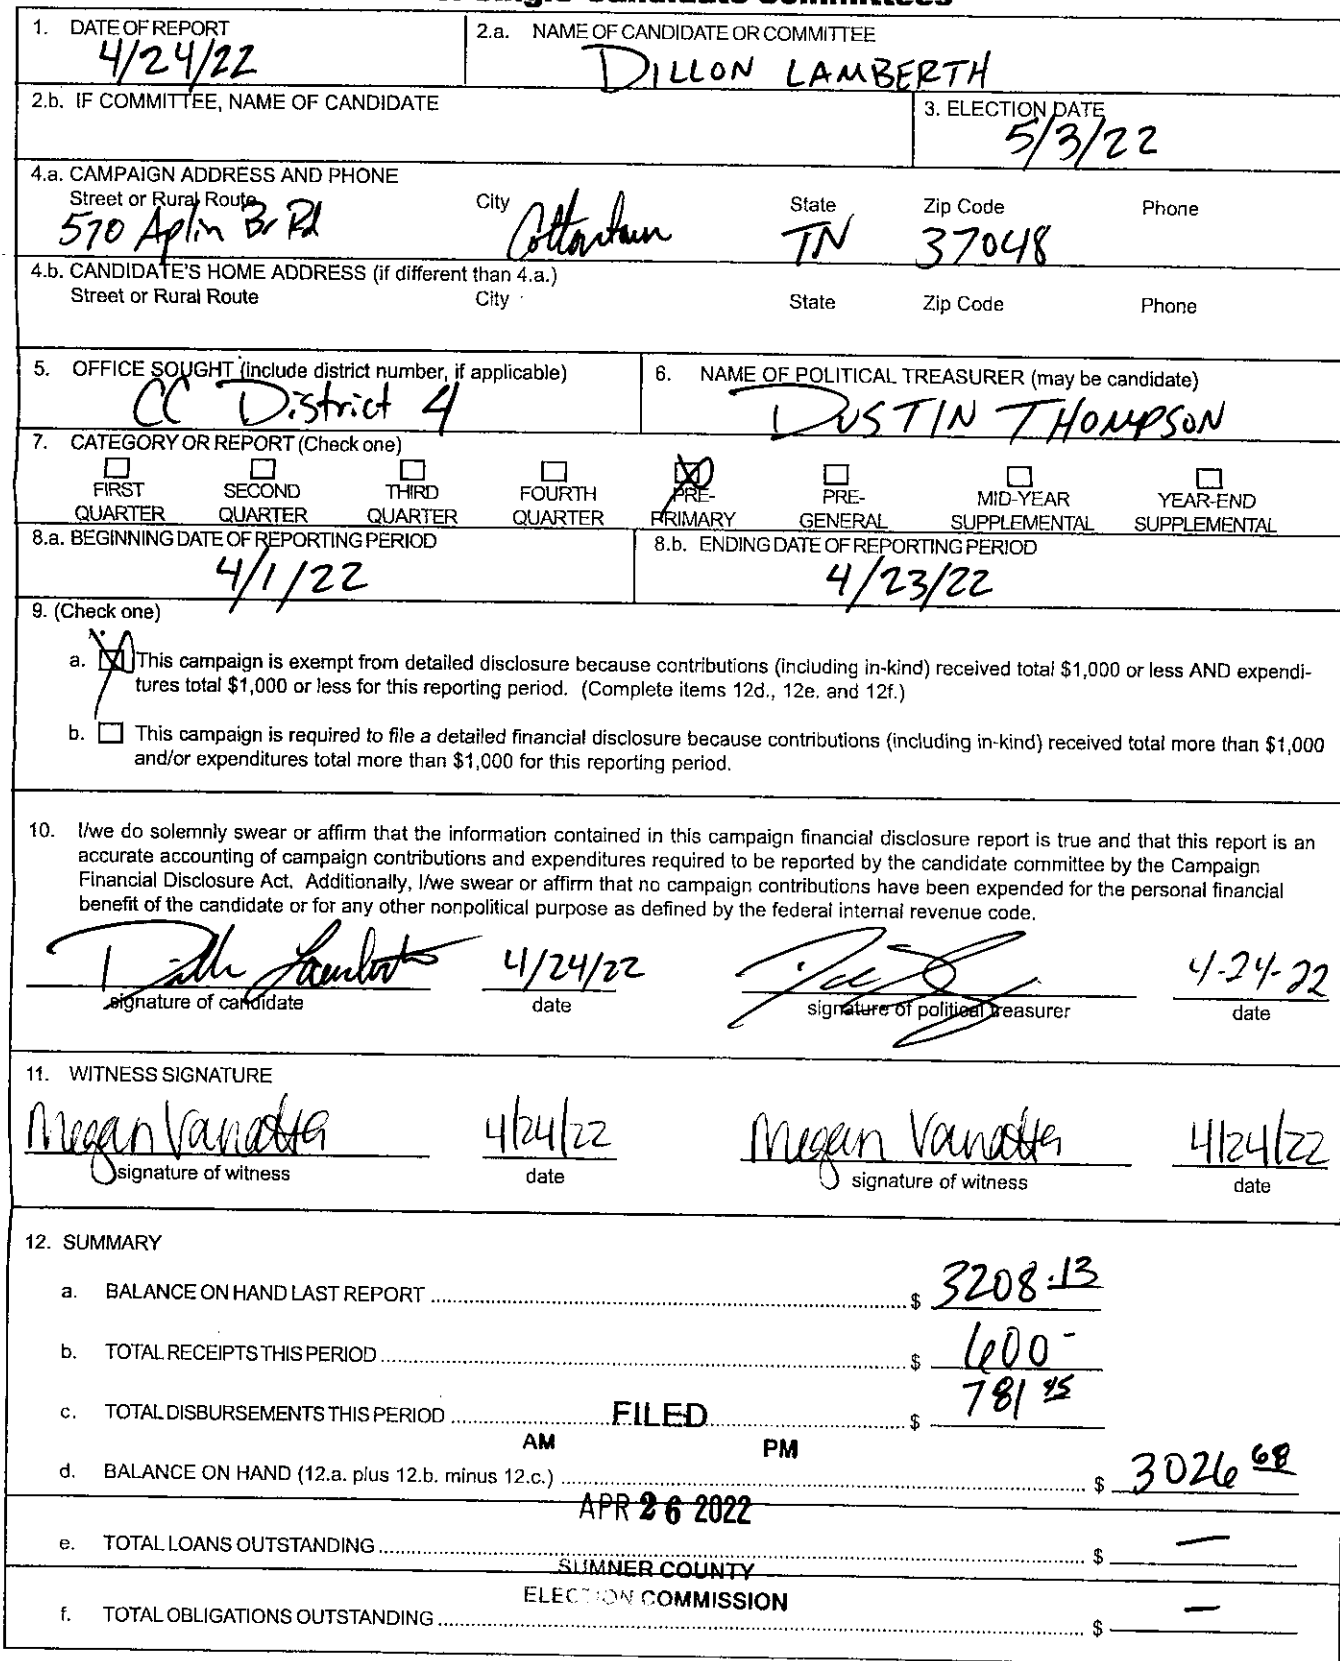 Single Candidate Committees
1. DATE OF REPORT
4/24/22
2.a. NAME OF CANDIDATE OR COMMITTEE
DILLON LAMBERTH
2.b. IF COMMITTEE, NAME OF CANDIDATE
3. ELECTION DATE
5/3/22
4.a. CAMPAIGN ADDRESS AND PHONE
Street or Rural Route City State Zip Code Phone
570 Aplin Br Rd Cottontown TN 37048
4.b. CANDIDATE'S HOME ADDRESS (if different than 4.a.)
Street or Rural Route City State Zip Code Phone
5. OFFICE SOUGHT (include district number, if applicable)
CC District 4
6. NAME OF POLITICAL TREASURER (may be candidate)
DUSTIN THOMPSON
7. CATEGORY OR REPORT (Check one)
FIRST QUARTER
SECOND QUARTER
THIRD QUARTER
FOURTH QUARTER
PRE-PRIMARY
PRE-GENERAL
MID-YEAR SUPPLEMENTAL
YEAR-END SUPPLEMENTAL
8.a. BEGINNING DATE OF REPORTING PERIOD
4/1/22
8.b. ENDING DATE OF REPORTING PERIOD
4/23/22
9. (Check one)
a. This campaign is exempt from detailed disclosure because contributions (including in-kind) received total $1,000 or less AND expendi-
tures total $1,000 or less for this reporting period. (Complete items 12d., 12e. and 12f.)
b. This campaign is required to file a detailed financial disclosure because contributions (including in-kind) received total more than $1,000
and/or expenditures total more than $1,000 for this reporting period.
10. I/we do solemnly swear or affirm that the information contained in this campaign financial disclosure report is true and that this report is an
accurate accounting of campaign contributions and expenditures required to be reported by the candidate committee by the Campaign
Financial Disclosure Act. Additionally, I/we swear or affirm that no campaign contributions have been expended for the personal financial
benefit of the candidate or for any other nonpolitical purpose as defined by the federal internal revenue code.
Dillon Lamberth 4/24/22 4-24-22
signature of candidate date signature of political treasurer date
11. WITNESS SIGNATURE
Megan Vanatta 4/24/22 Megan Vanatta 4/24/22
signature of witness date signature of witness date
12. SUMMARY
a. BALANCE ON HAND LAST REPORT $ 3208.13
b. TOTAL RECEIPTS THIS PERIOD $ 600-
c. TOTAL DISBURSEMENTS THIS PERIOD $ 781 45
FILED
AM PM
d. BALANCE ON HAND (12.a. plus 12.b. minus 12.c.) $ 3026 68
APR 26 2022
e. TOTAL LOANS OUTSTANDING $ —
SUMNER COUNTY
ELECTION COMMISSION
f. TOTAL OBLIGATIONS OUTSTANDING $ —